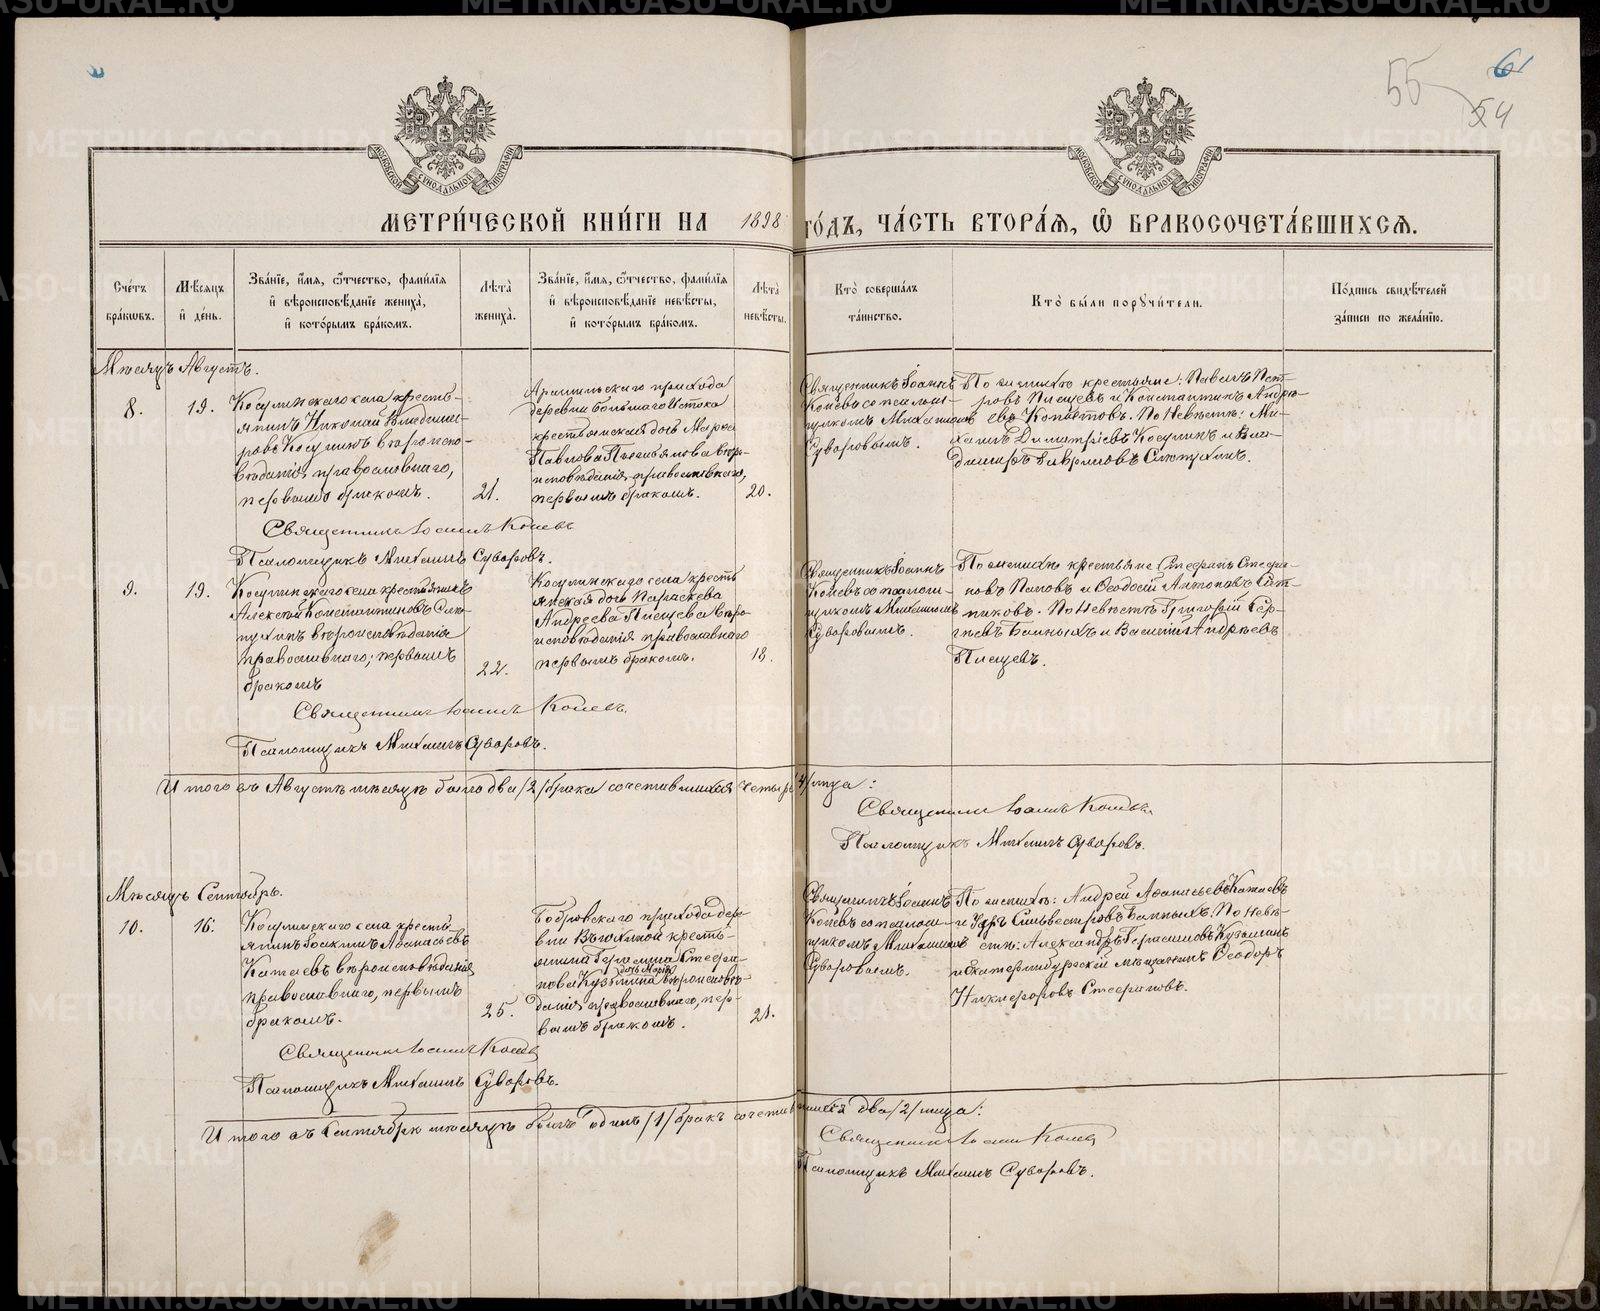 METRIKI.GASO-URAL.RU
55
61
54
МОСКОВСКОЙ СѴНОДАЛЬНОЙ ТИПОГРАФІИ
МОСКОВСКОЙ СѴНОДАЛЬНОЙ ТИПОГРАФІИ
МЕТРИ́ЧЕСКОЙ КНИ́ГИ НА 1898 ГО́ДЪ, ЧА́СТЬ ВТОРА́Я, Ѡ҆ БРАКОСОЧЕТА́ВШИХСЯ.
Сче́тъ бра́кѡвъ.
Мѣ́сяцъ и҆ де́нь.
Зва́нїе, и҆́мя, ѻ҆́тчество, фами́лїя и҆ вѣроисповѣ́данїе жениха̀, и҆ кото́рымъ бра́комъ.
Лѣ́та жениха̀.
Зва́нїе, и҆́мя, ѻ҆́тчество, фами́лїя и҆ вѣроисповѣ́данїе невѣ́сты, и҆ кото́рымъ бра́комъ.
Лѣ́та невѣ́сты.
Кто̀ соверша́лъ та́инство.
Кто̀ бы́ли порꙋчи́тели.
По́дпись свидѣ́телей за́писи по жела́нїю.
Мѣсяцъ Августъ.
8.
19.
Косулинскаго села кресть-
янинъ Николай Владими-
ровъ Косулинъ вѣроиспо-
вѣданія православнаго,
первымъ бракомъ.
21.
Арамильскаго прихода
деревни Большаго Истока
крестьянская дочь Марѳа
Павлова вѣро-
исповѣданія православнаго,
первымъ бракомъ.
20.
Священникъ Іоаннъ
Коневъ со псалом-
щикомъ Михаиломъ
Суворовымъ.
По женихѣ крестьяне: Павелъ Пет-
ровъ Пищевъ и Константинъ Андре-
евъ Копытовъ. По Невѣстѣ: Ми-
хаилъ Димитріевъ Косулинъ и Вла-
диміръ Гавриловъ
Священникъ Іоаннъ Коневъ
Псаломщикъ Михаилъ Суворовъ.
9.
19.
Косулинскаго села крестьянинъ
Алексѣй Константиновъ
вѣроисповѣданія
православнаго, первымъ
бракомъ
22.
Косулинскаго села кресть
янская дочь Параскева
Андреева Пищева вѣро
исповѣданія православнаго
первымъ бракомъ.
18.
Священникъ Іоаннъ
Коневъ со псалом-
щикомъ Михаиломъ
Суворовымъ.
По женихѣ крестьяне Стефанъ Стефа-
новъ Поповъ и Ѳеодосій Антоновъ
По Невѣстѣ Григорій Сер-
гѣевъ Банныхъ и Василій Андреевъ
Пищевъ.
Священникъ Іоаннъ Коневъ.
Псаломщикъ Михаилъ Суворовъ.
Итого въ Августѣ мѣсяцѣ было два /2/ брака сочетавшихся четыре /4/ лица:
Священникъ Іоаннъ Коневъ.
Псаломщикъ Михаилъ Суворовъ.
Мѣсяцъ Сентябрь.
10.
16.
Косулинскаго села кресть-
янинъ Іоакимъ Аѳанасьевъ
Катаевъ вѣроисповѣданія
православнаго, первымъ
бракомъ.
25.
Бобровскаго прихода дере
вни кресть-
янина Герасима Стефа-
нова Кузьмина дочь Марія вѣроисповѣ-
данія православнаго, пер-
вымъ бракомъ.
21.
Священникъ Іоаннъ
Коневъ со псалом-
щикомъ Михаиломъ
Суворовымъ.
По женихѣ: Андрей Аѳанасьевъ Катаевъ
и Сильвестровъ Банныхъ. По Невѣ-
стѣ: Александръ Герасимовъ Кузьминъ
и Екатеринбургскій мѣщанинъ Ѳеодоръ
Никифоровъ Стефановъ.
Священникъ Іоаннъ Коневъ
Псаломщикъ Михаилъ Суворовъ.
Итого въ Сентябрѣ мѣсяцѣ былъ одинъ /1/ бракъ сочетавшихся два /2/ лица:
Священникъ Іоаннъ Коневъ
Псаломщикъ Михаилъ Суворовъ.